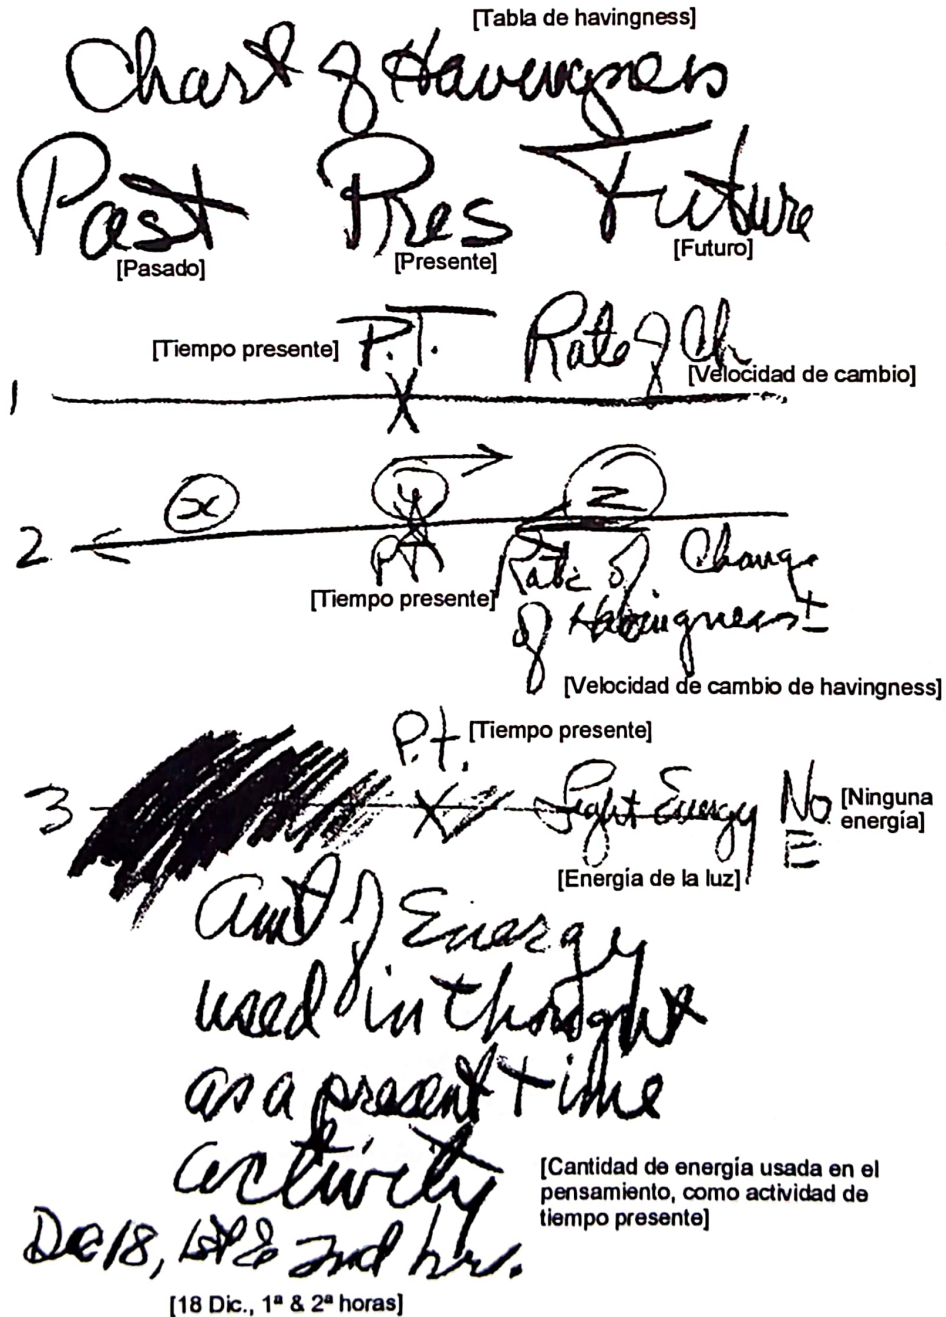 [Tabla de havingness]
Chart of Havingness
Past Pres Future
[Pasado] [Presente] [Futuro]
[Tiempo presente] P.T. Rate of Ch
[Velocidad de cambio]
1 X
x y z
2
PT Rate of Change
[Tiempo presente] of Havingness ±
[Velocidad de cambio de havingness]
P.t. [Tiempo presente]
3 X Light Energy No E [Ninguna
energía]
[Energía de la luz]
Amt of Energy
used in thought
as a present time
activity
[Cantidad de energía usada en el
pensamiento, como actividad de
tiempo presente]
Dec 18, 1st & 2nd hr.
[18 Dic., 1ª & 2ª horas]